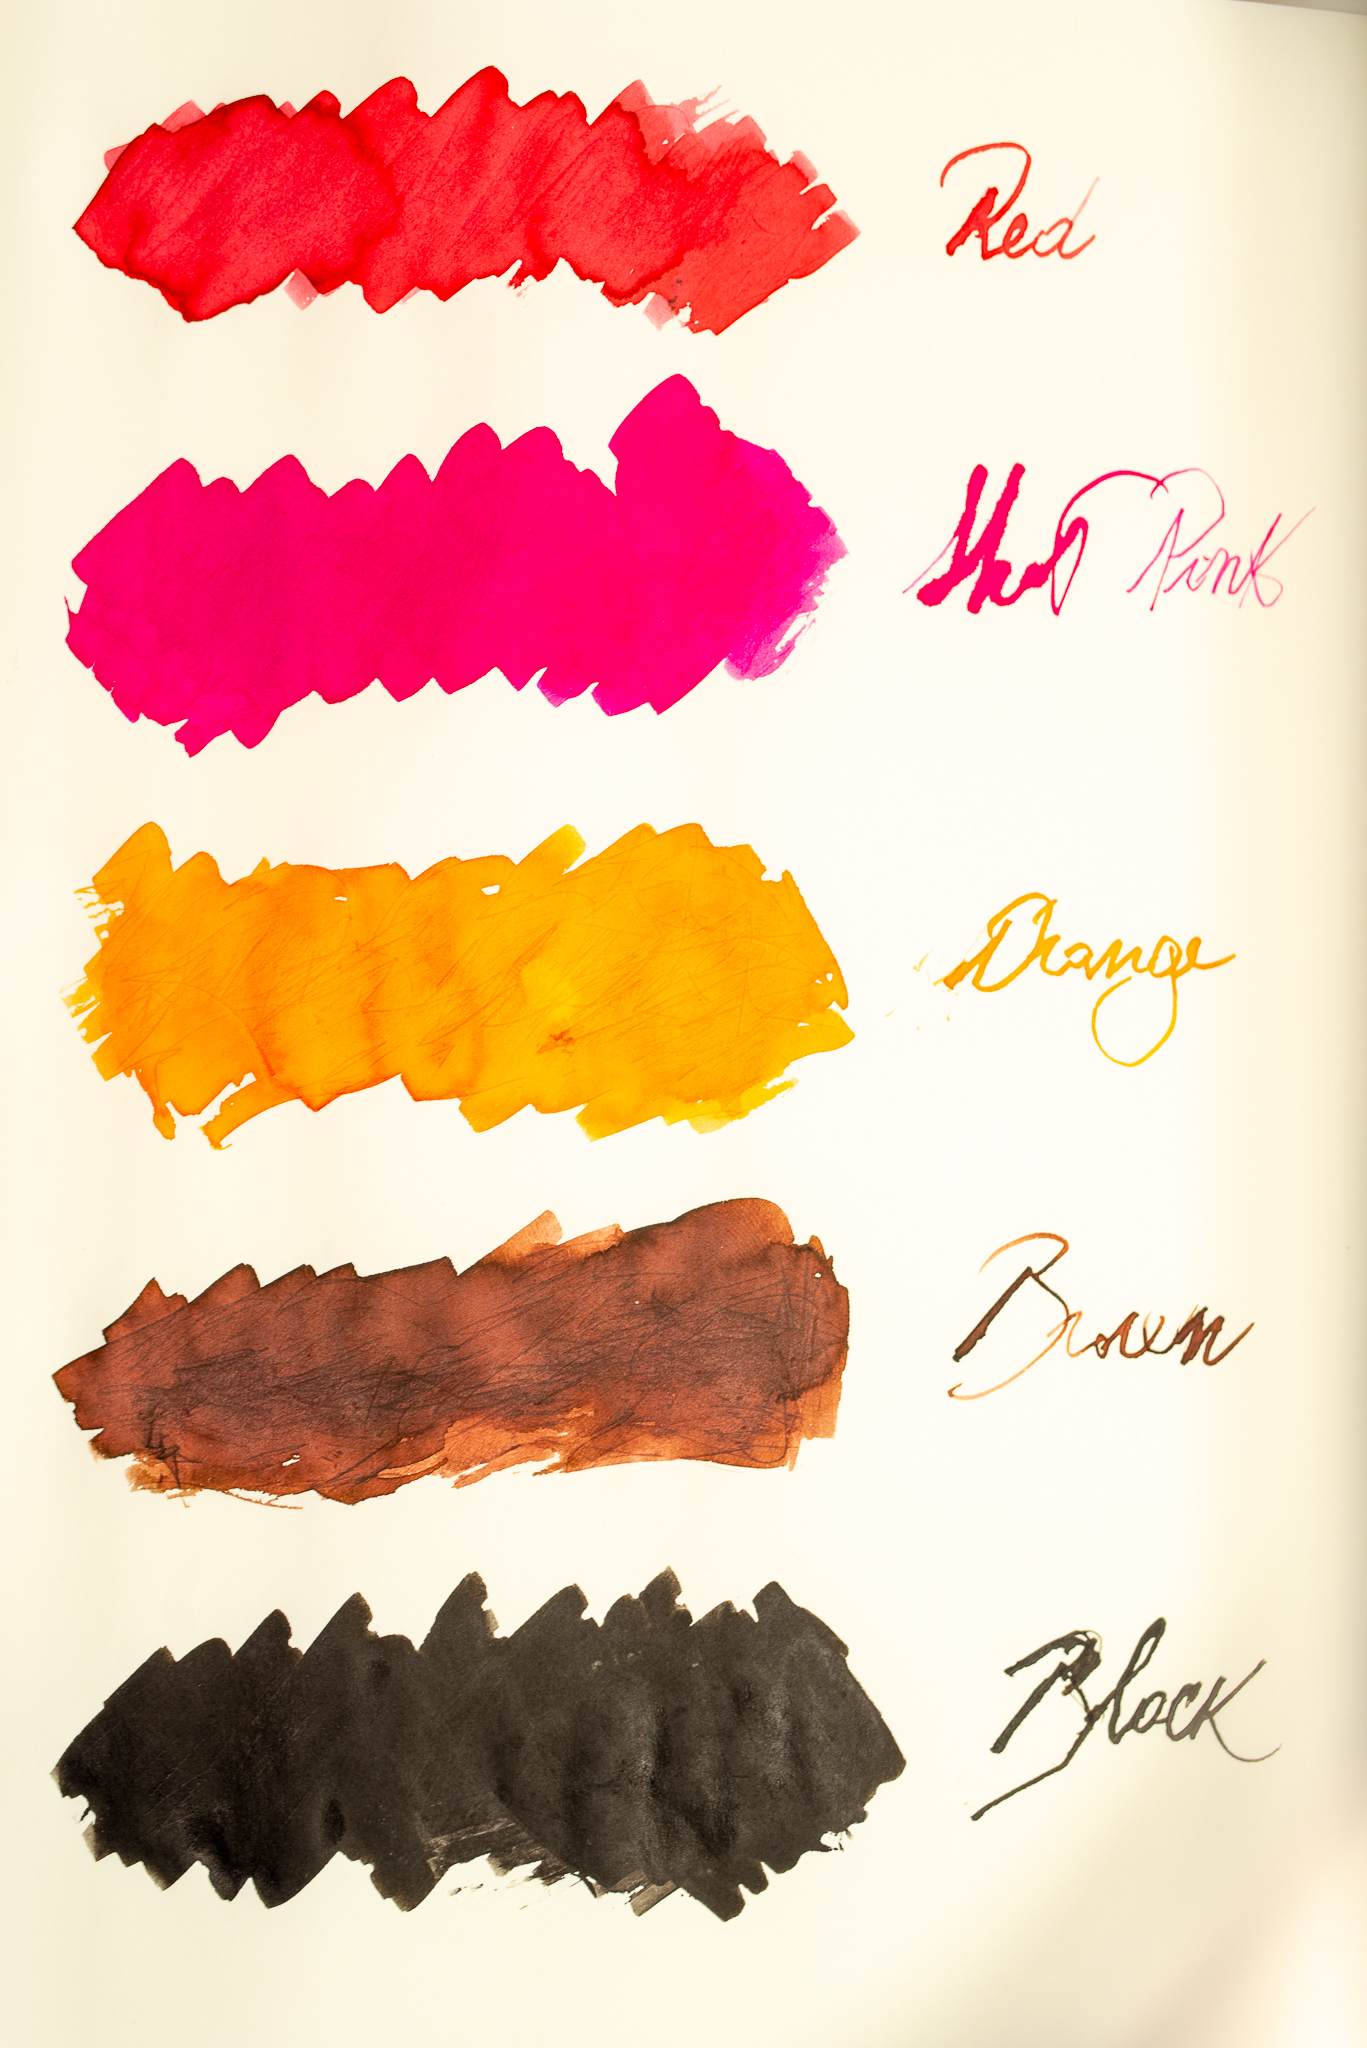 Red
Hot Pink
Orange
Brown
Black